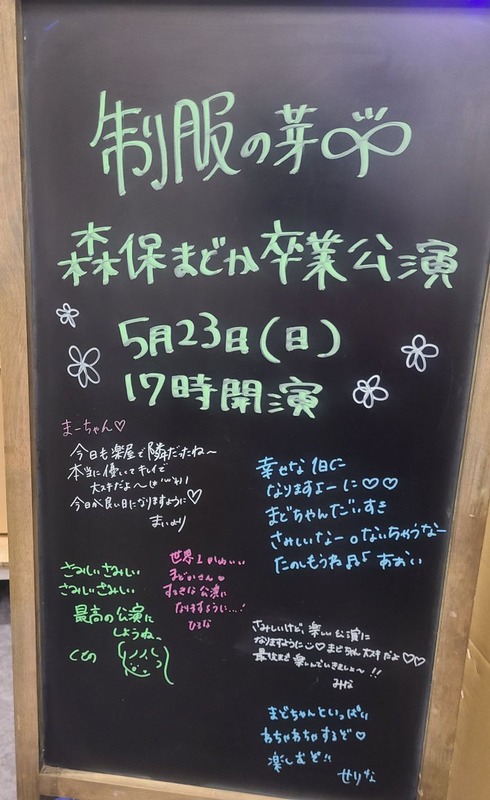 制服の芽
森保まどか卒業公演
5月23日(日)
17時開演
まーちゃん♡
今日も楽屋で隣だったね〜
本当に優しくてキレイで
大スキだよ〜
今日が良い日になりますように♡
まいより
幸せな1日に
なりますよーに♡♡
まどちゃんだいすき
さみしいなー。ないちゃうなー
たのしもうね♪♪ あおい
さみしいさみしい
さみしいさみしい
最高の公演に
しようね、
世界1かわいい
まどかさん
すてきな公演に
なりますように…!
ひろな
さみしいけど、楽しい公演に
なりますように まどちゃん大スキだよ♡♡
最後まで楽しんでいきましょ〜!!
みな
まどちゃんといっぱい
あちゃあちゃするぞ♡
楽しむぞ!!
せりな